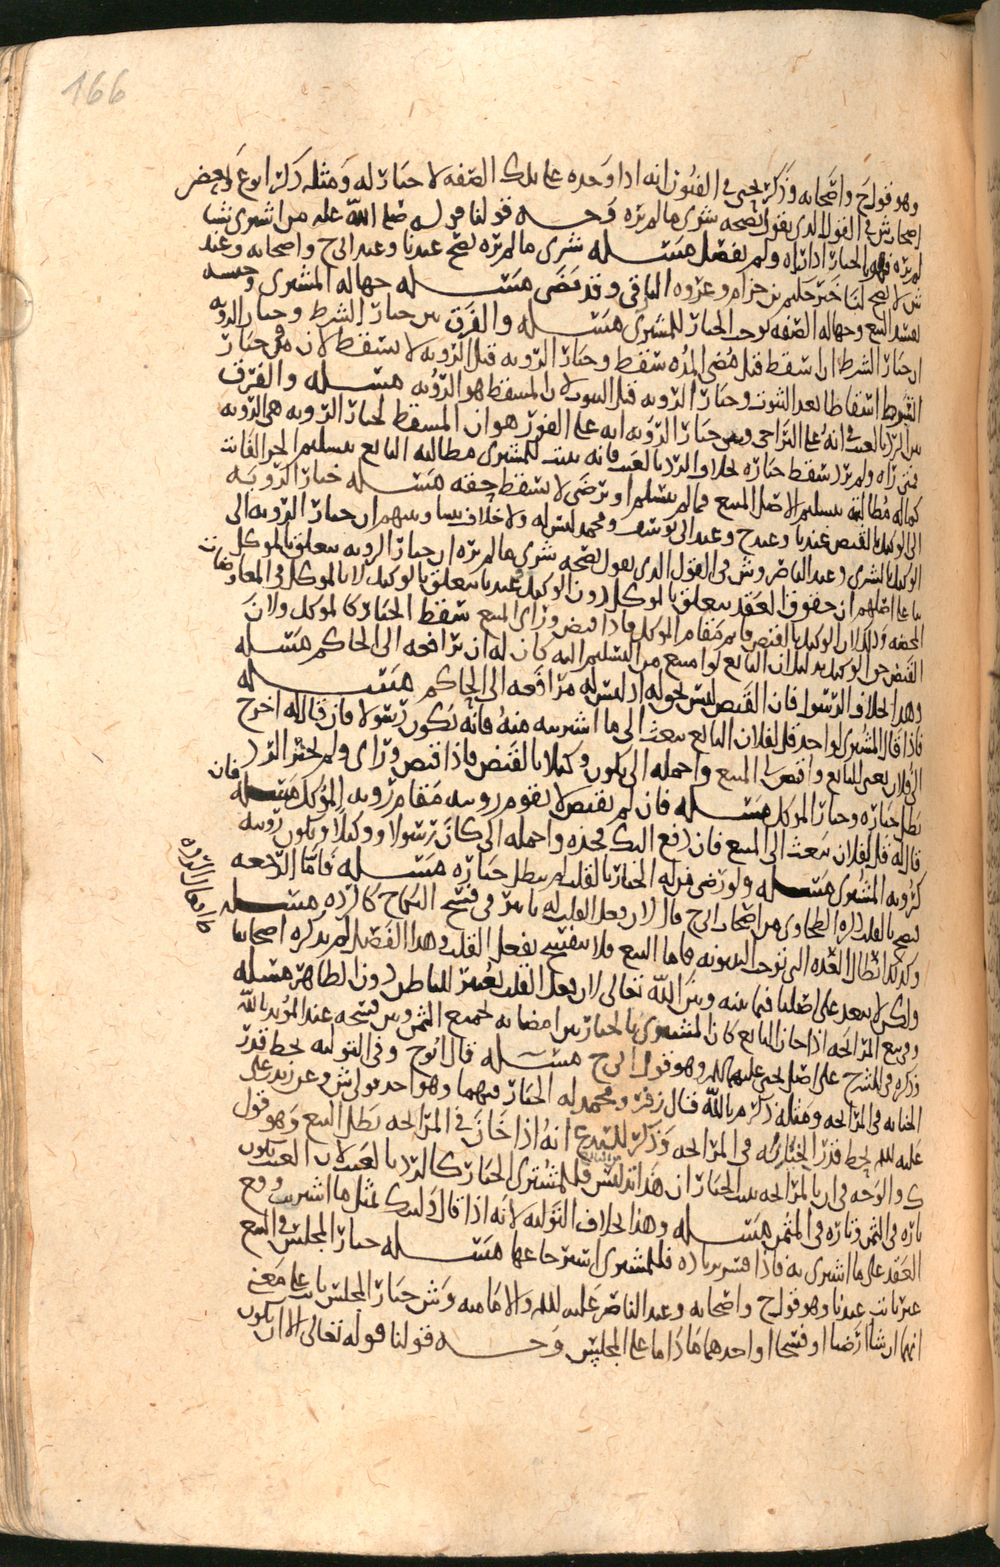 166
وهو قول ح واصحابه وذكر يحيى في الفنون انه اذا وجده على تلك الصفه لا خيار له ومثله ذكر ابوع وبعض
اصحاب ش في القول الذي يقول بصحه شرى ما لم يره وجـــه قولنا قوله صلى الله عليه من اشترى شيا
لم يره فهو بالخيار اذا راه ولم يفصل مسـله شرى ما لم يره يصح عندنا وعند ابي ح واصحابه وعند
ش لا يصح لنا خبر حكيم بن حزام وعروه البارقي وقد مضى مسـله جهاله المشترى وجنسه
يفسد البيع وجهاله الصفه توجب الخيار للمشترى مسـله والفرق بين خيار الشرط وخيار الرويه
ان خيار الشرط ان اسقط قبل مضي المده سقط وخيار الرويه قبل الرويه لا يسقط لان في خيار
الشرط اسقاطا بعد الثبوت وخيار الرويه قبل الثبوت لان المسقط هو الرؤيه مسـله والفرق
بين الرد بالعيب في انه على التراخي وبين خيار الرويه انه على الفور هو ان المسقط لخيار الرويه هي الرويه
فمتى راه ولم يرد سقط خياره بخلاف الرد بالعيب فانه يثبت للمشترى مطالبه البايع بتسليم الجزء الفايت
كما له مطالبته بتسليم الاصل المبيع فما لم يسلم او يرضى لا يسقط حقه مسـله خيار الرويه
الى الوكيل بالقبض عندنا وعند ح وعند ابي يوسف ومحمد ليس له ولا خلاف بيننا وبينهم ان خيار الرويه الى
الوكيل بالشرى وعند الناصر وش في القول الذي يقول بصحه شرى ما لم يره ان خيار الرويه يتعلق بالموكل
بنا على اصلهم ان حقوق العقد يتعلق بالموكل دون الوكيل وعندنا يتعلق بالوكيل لا بالموكل في المعاوضات
المحضه وذلك لان الوكيل بالقبض قايم مقام الموكل فاذا قبض وراى المبيع سقط الخيار كالموكل ولان
القبض حق الوكيل بدليل ان البايع لو امتنع من التسليم اليه كان له ان يرافعه الى الحاكم مسـله
وهذا بخلاف الرسول فان القبض ليس بحق له اذ ليس له مرافعه الى الحاكم مسـله
فاذا قال المشترى لواحد قل لفلان البايع يبعث الي ما اشتريته منه فانه يكون رسولا فان قال له اخرج
الى فلان يعنى البايع واقبض لي المبيع واحمله الي يكون وكيلا بالقبض فاذا قبض وراى ولم يختر الرد
بطل خياره وخيار الموكل مسـله فان لم يقبض لا يقوم رويته مقام رويه الموكل مسـله فان
قال له قل لفلان يبعث الي المبيع فان دفع اليك فخذه واحمله الي كان رسولا ووكيلا ويكون رويته
كرويه المشترى مسـله ولو رضي من له الخيار بالقلب لم يبطل خياره مسـله فاما الرجعه
يصح بالقلب ذكره الطحاوي من اصحاب ابي ح قال لان فعل القلب له تاثير في فسخ النكاح كالرده مسـله
وكذلك ابطال العده التي توجب البينونه فاما البيع فلا ينفسخ بفعل القلب وهذا الفصل لم يذكره اصحابنا
ولكن لا يبعد على اصلنا فيما بينه وبين الله تعالى لان فعل القلب يعتبر للباطن دون الظاهر مسـله
وفي بيع المرابحه اذا خان البايع كان للمشترى بالخيار بين امضايه بجميع الثمن وبين فسخه عند المؤيد بالله
ذكره في الشرح على اصل يحيى عليه السلام وهو قول ابي ح مسـله قال ابو ح وفي التوليه يحط قدر
الخيانه في المرابحه ومثله ذكر م بالله قال زفر ومحمد له الخيار فيهما وهو احد قولي ش وعن زيد بن علي
عليه السلام يحط قدر الخيانه في المرابحه وذكر للتفريع انه اذا خان في المرابحه بطل البيع وهو قول
ك والوجه في ان بالمرابحه يثبت الخيار ان هذا تدليس فللمشترى الخيار كالرد بالعيب لان العيب يكون
تاره في الثمن وتاره في المثمن مسـله وهذا بخلاف التوليه لانه اذا قال وليتك بمثل ما اشتريت وقع
العقد على ما اشترى به فاذا فسر بزياده فللمشترى استرجاعها مسـله خيار المجلس في البيع
غير ثابت عندنا وهو قول ح واصحابه وعند الناصر عليه السلام والاماميه وش خيار المجلس ثابت على معنى
انهما ان شاا رضيا او فسخا او احدهما ما داما على المجلس وجـــه قولنا قوله تعالى الا ان يكون